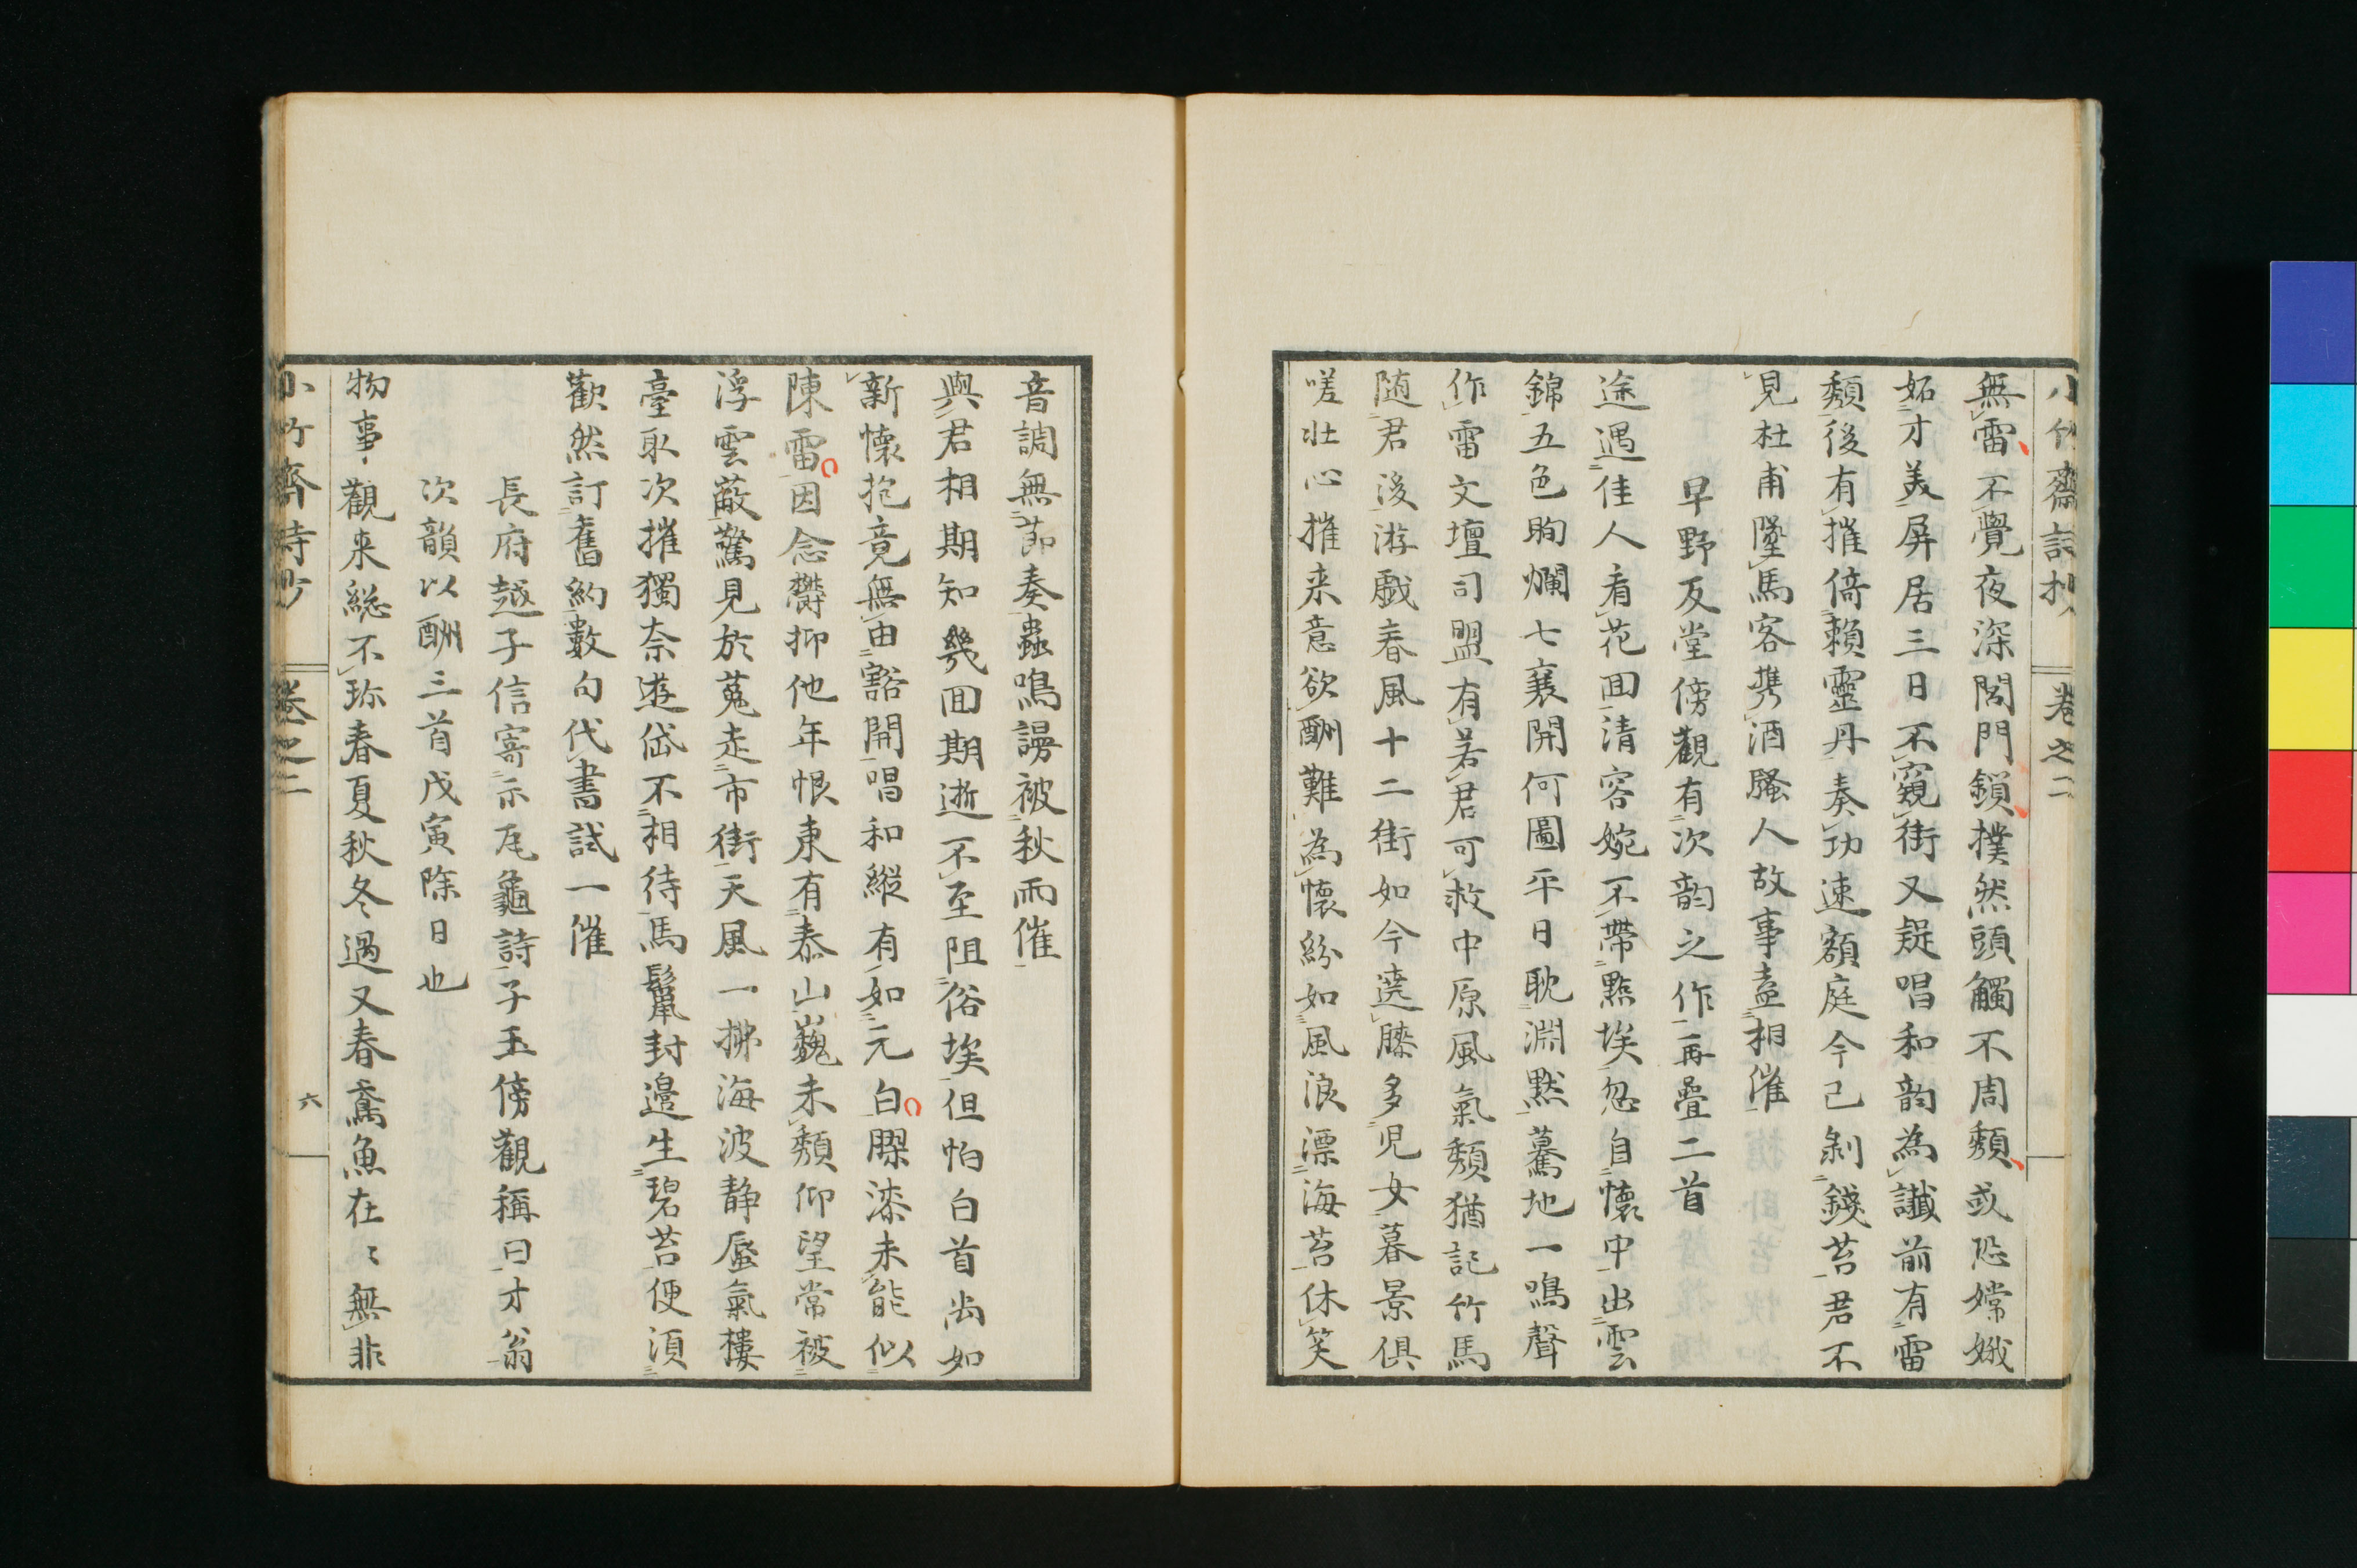 小竹齋詩抄 卷之二
無雷不覺夜深閤門鎖撲然頭觸不周頽或恐嫦娥
妬才美屏居三日不窺街又疑唱和韵為讖前有雷
頽後有摧倚賴靈丹奏功速額庭今已剝錢苔君不
見杜甫墜馬客携酒騷人故事盍相催
早野反堂傍觀有次韵之作再疊二首
途遇佳人看花回清容婉不帶點埃忽自懷中出雲
錦五色眴爛七襄開何圖平日耽淵默驀地一鳴聲
作雷文壇司盟有若君可救中原風氣頽猶記竹馬
随君後游戲春風十二街如今遶膝多児女暮景俱
嗟壯心摧来意欲酬難為懷紛如風浪漂海苔休笑
音調無節奏蟲鳴謾被秋雨催
與君相期知幾回期逝不至阻俗埃但怕白首尚如
新懷抱竟無由豁開唱和縱有如元白膠漆未能似
陳雷因念欝抑他年恨東有泰山巍未頽仰望常被
浮雲蔽驚見於菟走市街天風一拂海波静蜃氣樓
臺取次摧獨奈遊岱不相待馬鬣封邉生碧苔便須
歡然訂舊約數句代書試一催
長府越子信寄示瓦龜詩子玉傍觀稱曰才翁
次韻以酬三首戊寅除日也
物事觀来総不珎春夏秋冬過又春鳶魚在〻無非
小竹齋詩抄 卷之二 六